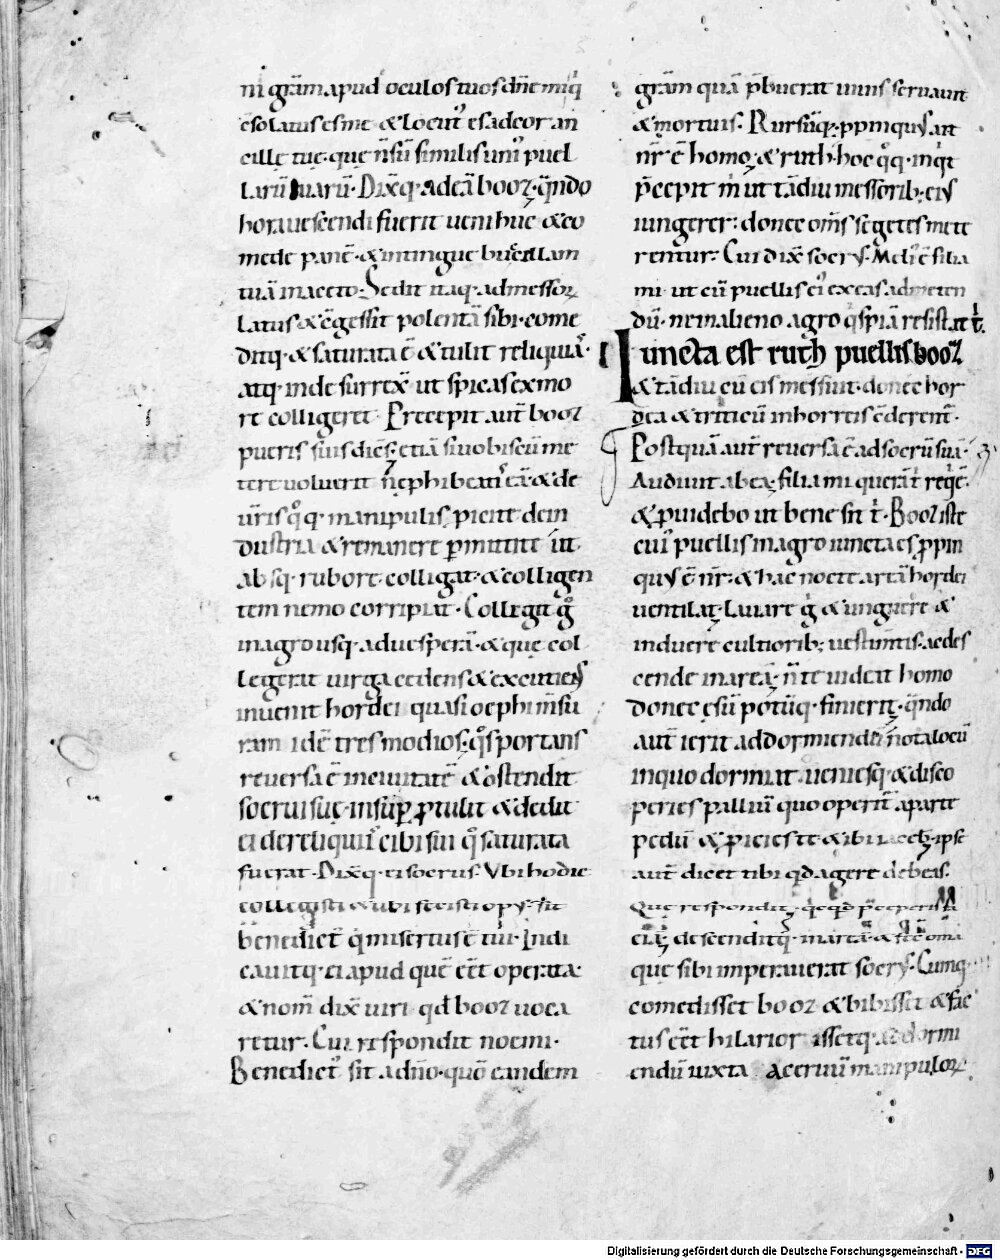 ni grãm apud oculos tuos dñe mi q̇
ɔsolatus es me & locutꝰ es ad cor an
cillę tuę. que ñ sũ similis uniꝰ puel
larũ tuarũ. Dix̃q. ad eã booz. qñdo
hora uescendi fuerit ueni huc & co
mede panẽ. & intingue buccellam
tuã in aceto. Sedit itaq. ad messoꝝ
latus & ɔgessit polentã sibi. come
ditq. & saturata ẽ & tulit reliquias.
atq. inde surrex̃ ut spicas ex mo
re colligeret. Precepit aut̃ booz
pueris suis diceñs. etiã si uobiscũ me
tere uoluerit ne phibeatis eã. & de
ur̃is q̊q. manipulis ꝓicite de in
dustria & remanere pmittite ut
absq. rubore colligat. & colligen
tem nemo corripiat. Collegit g̊
in agro usq. ad uesperã. & que col
legerat uirga cedens & excutiens
inuenit hordei quasi oephi mensu
ram. idẽ tres modios. q̊s portans
reuersa ẽ in ciuitatẽ & ostendit
socrui suę. insup ꝓtulit & dedit
ei de reliquiis cibi sui q̊ saturata
fuerat. Dix̃q. ei socrus. Ubi hodie
collegisti & ubi fecisti opus. sit
benedictꝰ q̇ misertus ẽ tui. Indi
cauitq. ei apud quẽ eẽt operata.
& nom̃ dix̃ uiri qd booz uoca
retur. Cui respondit noemi.
Benedictꝰ sit a dño. qm̃ eandem
grãm quã p̃buerat uiuis seruauit
& mortuis. Rursũq. ppinquus ait
nr̃ ẽ homo. & ruth. hoc q̊q. inq̇t
p̃cepit m̃ ut tãdiu messorib; eius
iungerer. donec om̃s segetes mete
rentur. Cui dix̃ socrus. Meliꝰ ẽ filia
mi. ut cũ puellis eiꝰ exeas ad meten
dũ. ne in alieno agro q̇spiã resistat t̃.
Iuncta est ruth puellis booz
& tãdiu cũ eis messuit. donec hor
dea & triticũ in horreis ɔderent̃.
Postquã aut̃ reuersa ẽ ad socrũ suã.
Audiuit ab ea. filia mi querã t̃ requiẽ.
& ꝓuidebo ut bene sit t̃. Booz iste
cuiꝰ puellis in agro iuncta es ꝓpin
quus ẽ nr̃. & hac nocte areã hordei
uentilat. Lauare g̊ & unguere &
induere cultiorib; uestim̃tis. ac des
cende in areã. ñ te uideat homo
donec esũ potũq. finierit. qñdo
aut̃ ierit ad dormiendũ nota locũ
in quo dormiat. ueniesq. & disco
peries palliũ quo operit̃ a parte
pedũ & ꝓicies te & ibi iacebis. ipse
aut̃ dicet tibi qd agere debeas.
Que respondit.
descenditq. in areã & fecit om̃a
que sibi imperauerat socrus. Cumq.
comedisset booz & bibisset & fac
tus eẽt hilarior issetq. ad dormi
endũ iuxta aceruũ manipuloꝝ
Digitalisierung gefördert durch die Deutsche Forschungsgemeinschaft - DFG